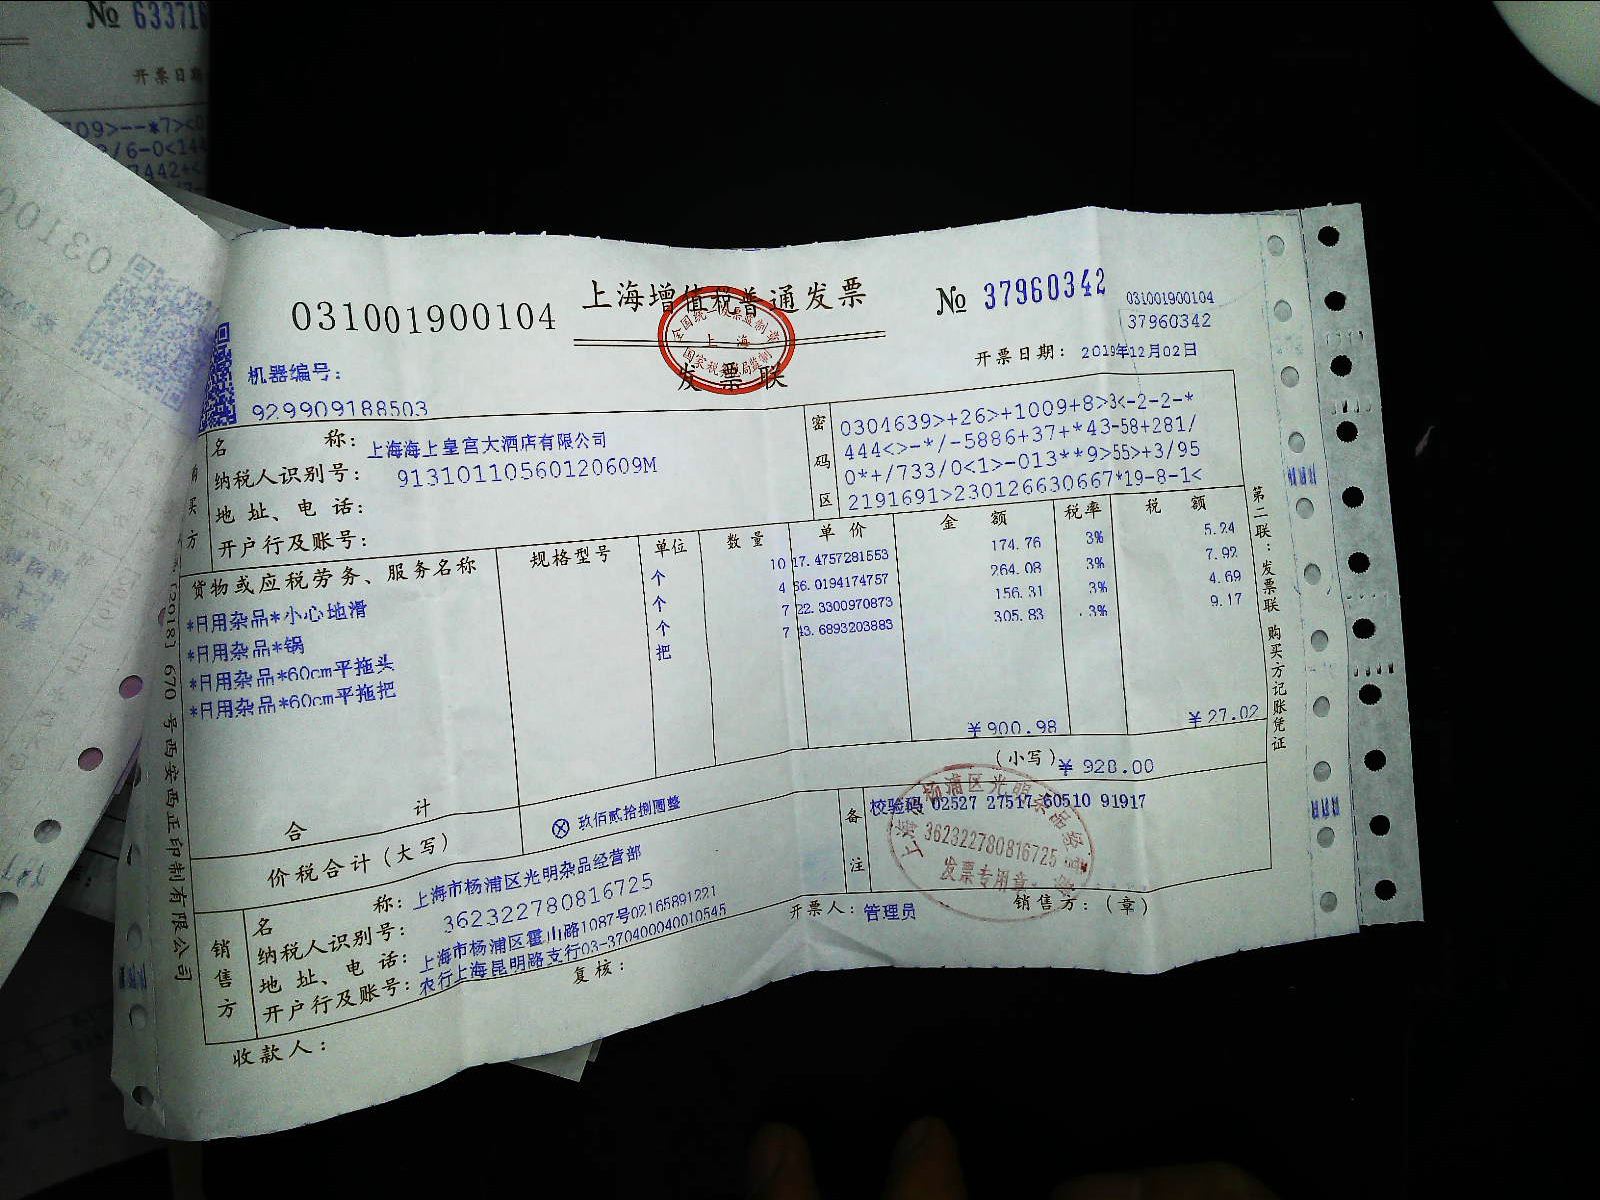 No 633716
开票日期
309>--*7><0
2/6-0<144
7442+<
03100
031001900104
上海增值税普通发票
全国统一发票监制章
上海
国家税务总局监制
发票联
No 37960342
031001900104
37960342
开票日期: 2019年12月02日
机器编号:
929909188503
购买方
名称: 上海海上皇宫大酒店有限公司
纳税人识别号: 91310110560120609M
地址、电话:
开户行及账号:
密码区
0304639>+26>+1009+8>3<-2-2-*
444<>-*/-5886+37+*43-58+281/
0*+/733/0<1>-013**9>55>+3/95
2191691>230126630667*19-8-1<
货物或应税劳务、服务名称 规格型号 单位 数量 单价 金额 税率 税额
*日用杂品*小心地滑 个 10 17.4757281553 174.76 3% 5.24
*日用杂品*锅 个 4 66.0194174757 264.08 3% 7.92
*日用杂品*60cm平拖头 个 7 22.3300970873 156.31 3% 4.69
*日用杂品*60cm平拖把 把 7 43.6893203883 305.83 3% 9.17
合计 ¥900.98 ¥27.02
价税合计(大写) ⊗ 玖佰贰拾捌圆整 (小写) ¥928.00
销售方
名称: 上海市杨浦区光明杂品经营部
纳税人识别号: 362322780816725
地址、电话: 上海市杨浦区霍山路1087号02165891221
开户行及账号: 农行上海昆明路支行03-370400040010545
备注
校验码 02527 27517 60510 91917
362322780816725
发票专用章
收款人:
复核:
开票人: 管理员
销售方: (章)
第二联:发票联 购买方记账凭证
[2018] 670 号西安西正印制有限公司